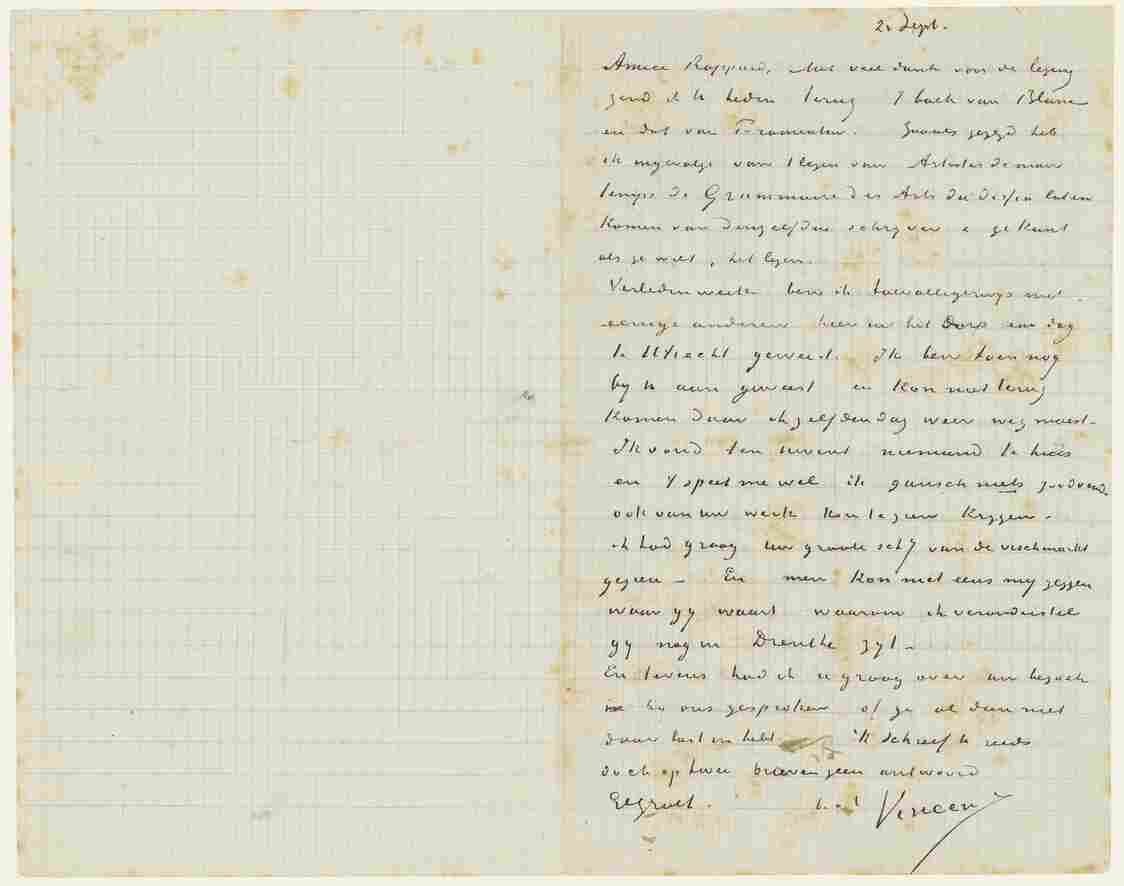 2 Sept.
Amice Rappard, Met veel dank voor de lezing
zend ik U heden terug 't boek van Blanc
en dat van Fromentin. Zooals gezegd heb
ik ingevolge van 't lezen van Artistes de mon
temps de Grammaire des Arts du dessin laten
komen van denzelfden schrijver & ge kunt
als ge wilt, het lezen.
Verleden week ben ik toevalligerwijs met
eenige anderen hier in het dorp een dag
te Utrecht geweest. Ik ben toen nog
bij U aan geweest en kon niet terug
komen daar ik zelfden dag weer weg moest.
Ik vond ten uwent niemand te huis
en 't speet me wel ik gansch niets
ook van uw werk kon te zien krijgen.
ik had graag uw groote schij van de vischmarkt
gezien – En men kon niet eens mij zeggen
waar gij waart waarom ik veronderstel
gij nog in Drenthe zijt –
En tevens had ik U graag over uw bezoek
bij ons gesproken of ge al dan niet
daar lust in hebt 'k schreef U reeds
doch op twee brieven geen antwoord
Gegroet. t. à t. Vincent